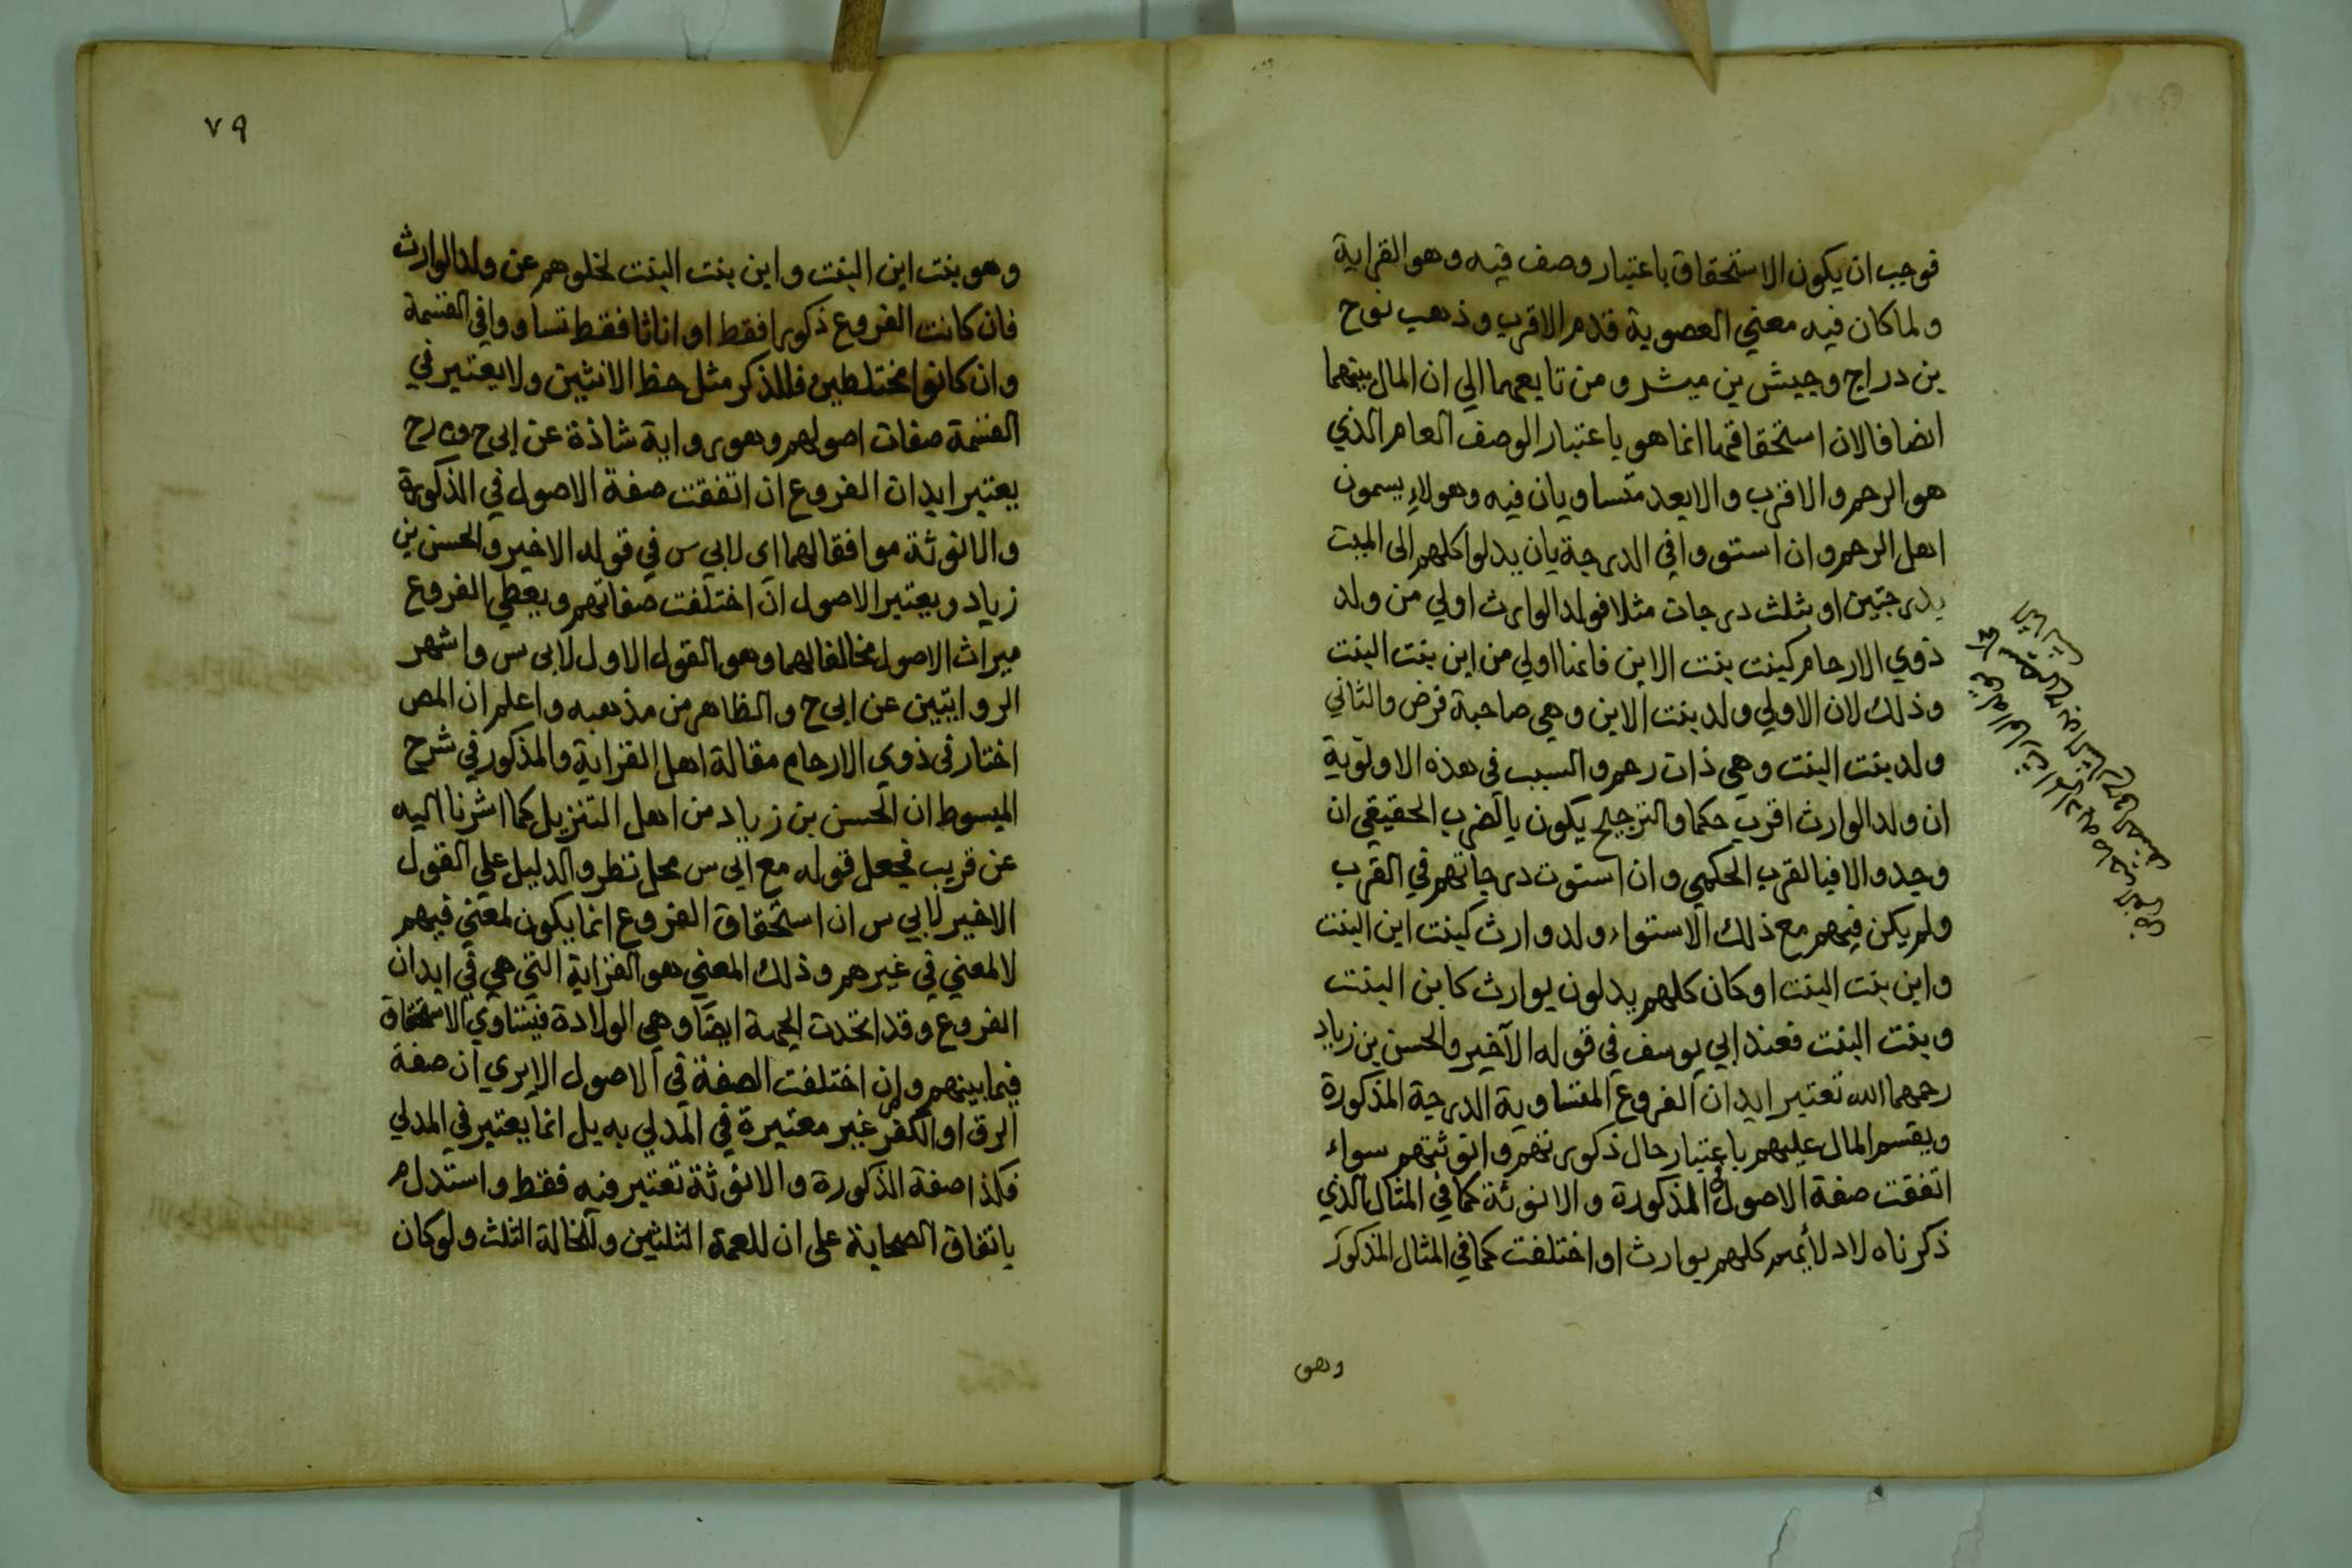 فوجب ان يكون الاستحقاق باعتبار وصف فيه وهو القرابة
ولما كان فيه معني العصوبة قدم الاقرب وذهب نوح
بن دراج وحبيش بن مبشر ومن تابعهما الي ان المال بينهما
انصافا لان استحقاقهما انما هو باعتبار الوصف العام الذي
هو الرحم والاقرب والابعد متساويان فيه وهولاء يسمون
اهل الرحم وان استووا في الدرجة بان يدلوا كلهم الى الميت
بدرجتين او بثلث درجات مثلا فولد الوارث اولي من ولد
ذوي الارحام كبنت بنت الابن فانها اولي من ابن بنت البنت
وذلك لان الاولي ولد بنت الابن وهي صاحبة فرض والثاني
ولد بنت البنت وهي ذات رحم والسبب في هذه الاولوية
ان ولد الوارث اقرب حكما والترجيح يكون بالقرب الحقيقي ان
وجد والا فبالقرب الحكمي وان استوت درجاتهم في القرب
ولم يكن فيهم مع ذلك الاستواء ولد وارث كبنت ابن البنت
وابن بنت البنت او كان كلهم يدلون بوارث كابن البنت
وبنت البنت فعند ابي يوسف في قوله الآخير والحسن بن زياد
رحمهما الله تعتبر ابدان الفروع المتساوية الدرجة المذكورة
ويقسم المال عليهم باعتبار حال ذكورتهم وانوثتهم سواء
اتفقت صفة الاصول في الذكورة والانوثة كما في المثال الذي
ذكرناه لادلائهم كلهم بوارث او اختلفت كما في المثال المذكور
وهو
٧٩
وهو بنت ابن البنت وابن بنت البنت لخلوهم عن ولد الوارث
فان كانت الفروع ذكورا فقط او اناثا فقط تساووا في القسمة
وان كانوا مختلطين فللذكر مثل حظ الانثيين ولا يعتبر في
القسمة صفات اصولهم وهو رواية شاذة عن ابي ح و م رح
يعتبر ابدان الفروع ان اتفقت صفة الاصول في الذكورة
والانوثة موافقا لهما اي لابي س في قوله الاخير والحسن بن
زياد ويعتبر الاصول ان اختلفت صفاتهم ويعطي الفروع
ميراث الاصول مخالفا لهما وهو القول الاول لابى س واشهر
الروايتين عن ابى ح والظاهر من مذهبه واعلم ان المص
اختار في ذوي الارحام مقالة اهل القرابة والمذكور في شرح
المبسوط ان الحسن بن زياد من اهل التنزيل كما اشرنا اليه
عن قريب فجعل قوله مع ابى س محل نظر والدليل علي القول
الاخير لابي س ان استحقاق الفروع انما يكون لمعني فيهم
لا لمعني في غيرهم وذلك المعني هو القرابة التي هي في ابدان
الفروع وقد اتحدت الجهة ايضا وهي الولادة فيتساوي الاستحقاق
فيما بينهم وان اختلفت الصفة في الاصول الا يري ان صفة
الرق او الكفر غير معتبرة في المدلي به بل انما يعتبر في المدلي
فكذا صفة الذكورة والانوثة تعتبر فيه فقط واستدل م
باتفاق الصحابة على ان للعمة الثلثين وللخالة الثلث ولو كان